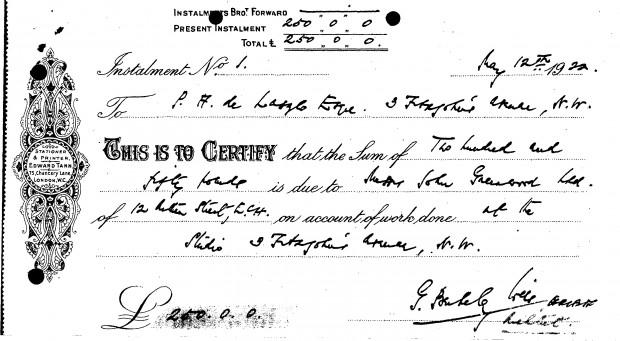 INSTALMENTS BROT. FORWARD " " "
PRESENT INSTALMENT 250 " 0 " 0
TOTAL £ 250 " 0 " 0
Instalment No. 1. May 12TH 1922.
To P. A. de Laszlo Esqre. 3 Fitzjohn's Avenue, N.W.
THIS IS TO CERTIFY that the Sum of Two hundred and
fifty pounds is due to Messrs John Greenwood Ltd.
of 12 Street, E.C.4. on account of work done at the
Studio 3 Fitzjohn's Avenue, N.W.
£ 250. 0. 0.
G. Wills
Architect
STATIONER
& PRINTER,
EDWARD TARR
15, Chancery Lane,
LONDON, W.C.